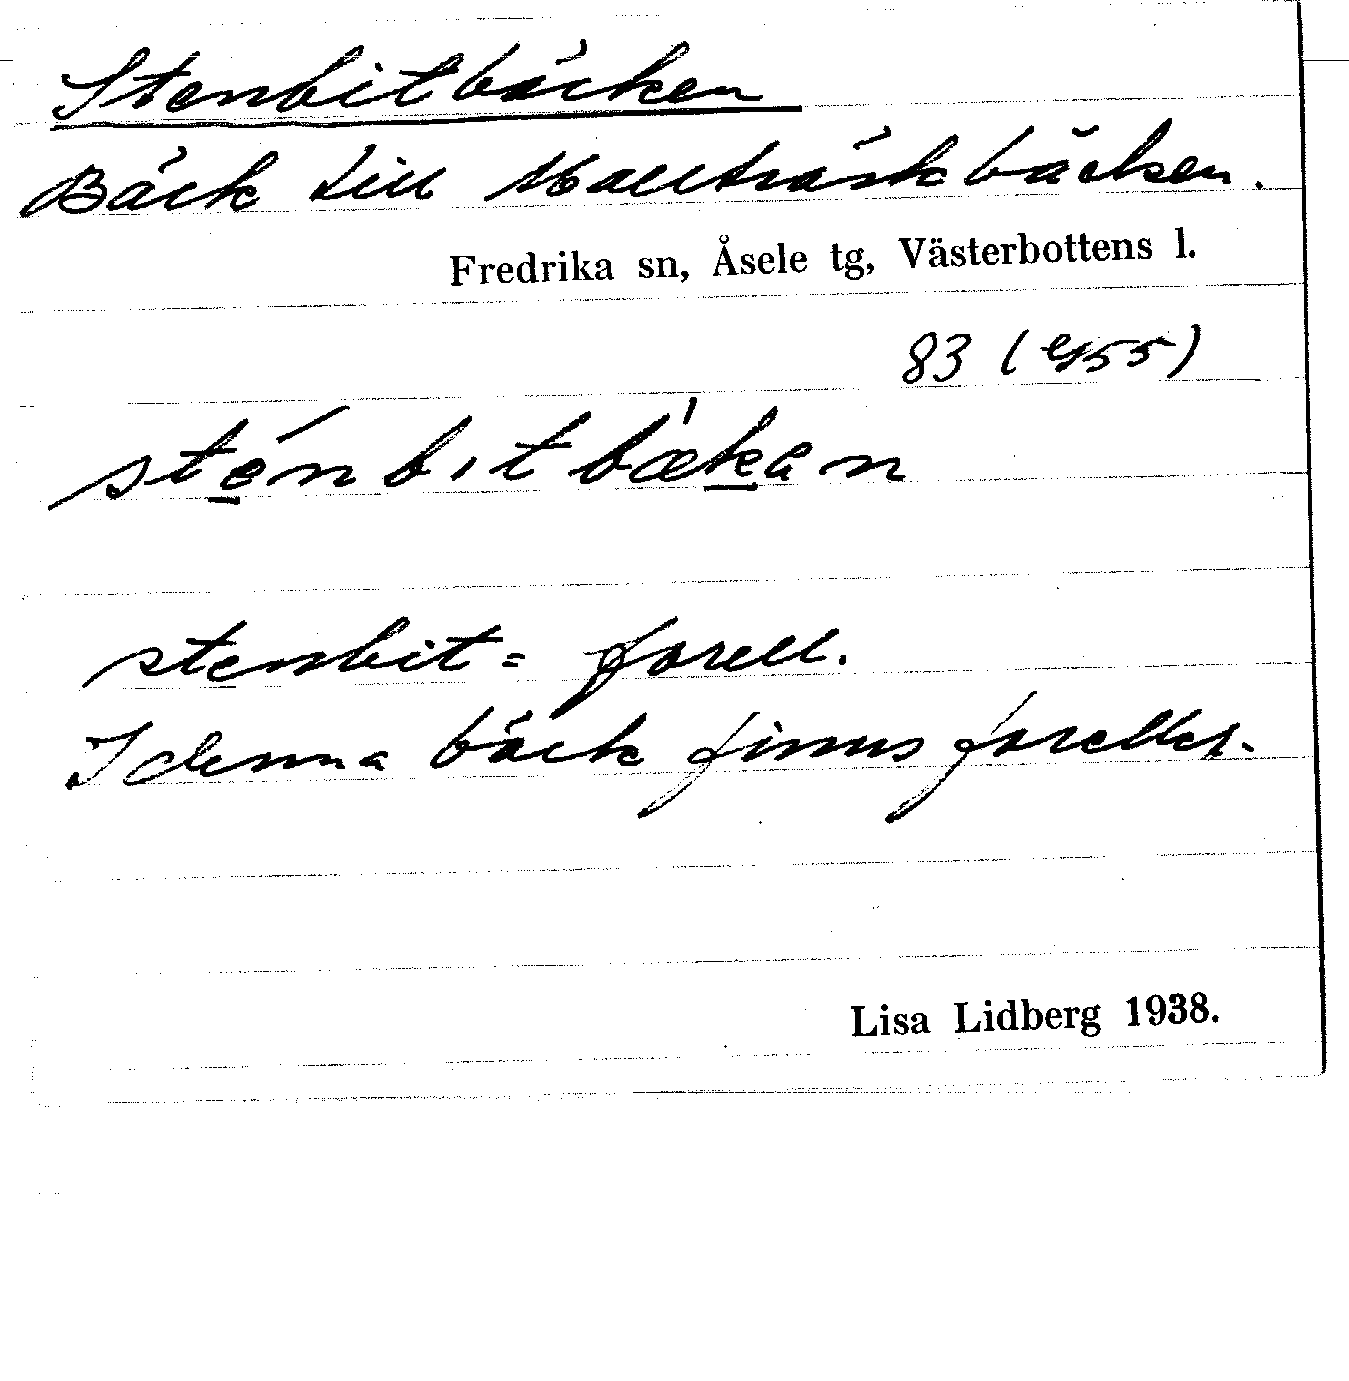 Stenbitbäcken
Bäck till Mallträskbäcken.
Fredrika sn, Åsele tg, Västerbottens l.
83
sténbıtbækan
stenbit = forell.
I denna bäck finns foreller.
Lisa Lidberg 1938.